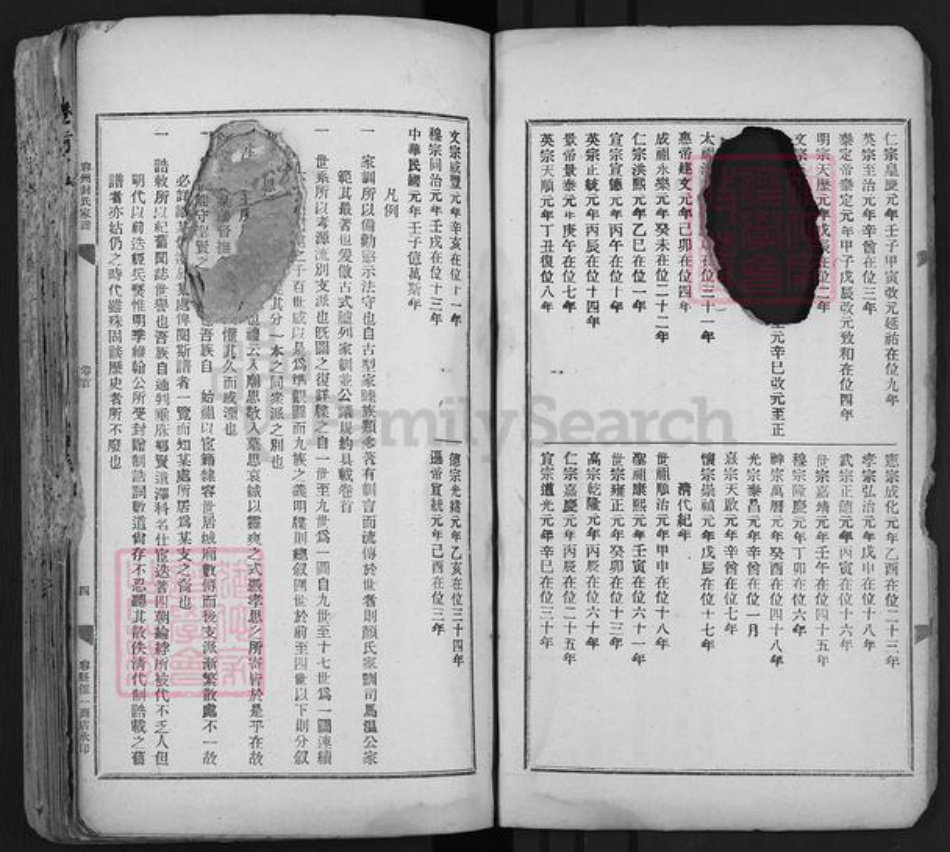 仁宗皇慶元年壬子甲寅改元延祐在位九年
英宗至治元年辛酉在位三年
泰定帝泰定元年甲子戊辰改元致和在位四年
明宗天歷元年戊辰在位二年
文宗
元辛巳改元至正
太
惠帝建文元年己卯在位四年
成祖永樂元年癸未在位二十二年
仁宗洪熙元年乙巳在位一年
宣宗宣德元年丙午在位十年
英宗正統元年丙辰在位十四年
景帝景泰元年庚午在位七年
英宗天順元年丁丑復位八年
憲宗成化元年乙酉在位二十三年
孝宗弘治元年戊申在位十八年
武宗正德元年丙寅在位十六年
世宗嘉靖元年壬午在位四十五年
穆宗隆慶元年丁卯在位六年
神宗萬曆元年癸酉在位四十八年
光宗泰昌元年辛酉在位一月
熹宗天啟元年辛酉在位七年
懷宗崇禎元年戊辰在位十七年
清代紀年
世祖順治元年甲申在位十八年
聖祖康熙元年壬寅在位六十一年
世宗雍正元年癸卯在位十三年
高宗乾隆元年丙辰在位六十年
仁宗嘉慶元年丙辰在位二十五年
宣宗道光元年辛巳在位三十年
文宗咸豐元年辛亥在位十一年
穆宗同治元年壬戌在位十三年
中華民國元年壬子億萬斯年
德宗光緒元年乙亥在位三十四年
遜帝宣統元年己酉在位三年
凡例
一 家訓所以備勸懲示法守也自古型家睦族類多著有訓言而流傳於世者則顏氏家訓司馬溫公家
範其最著也爰倣古式臚列家訓並公議規約具載卷首
一 世系所以考源流別支派也既圖之復詳牒之自一世至九世為一圖自九世至十七世為一圖連續
之千百世咸以是為準觀圖而九族之義明牒則總叙四世於前至四世以下則分叙
其分一本之同衆派之別也
也禮云入廟思敬入墓思哀誠以靈爽之式憑孝思之所寄皆於是乎在故
懼其久而或湮也
吾族自 始祖以宦籍隸容世居城廂數傳而後支派漸繁散處不一故
必詳
某處傳閱斯譜者一覽而知某處所居為某支之裔也
一 誥敕所以紀舊聞誌世譽也吾族自通判垂庥鄉賢遺澤科名仕宦迭著四朝綸綍所被代不乏人但
明代以前迭經兵燹惟明季 翰公所受封贈制誥詞數道尚存不忍聽其散佚清代制誥載之舊
譜者亦姑仍之時代雖殊固談歷史者所不廢也
容州封氏家譜
卷首
四
FamilySearch